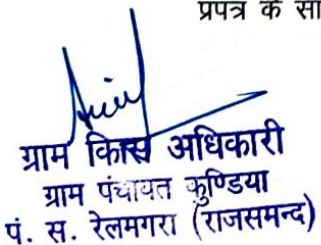 प्रपत्र के सा
ग्राम विकास अधिकारी
ग्राम पंचायत कुण्डिया
पं. स. रेलमगरा (राजसमन्द)